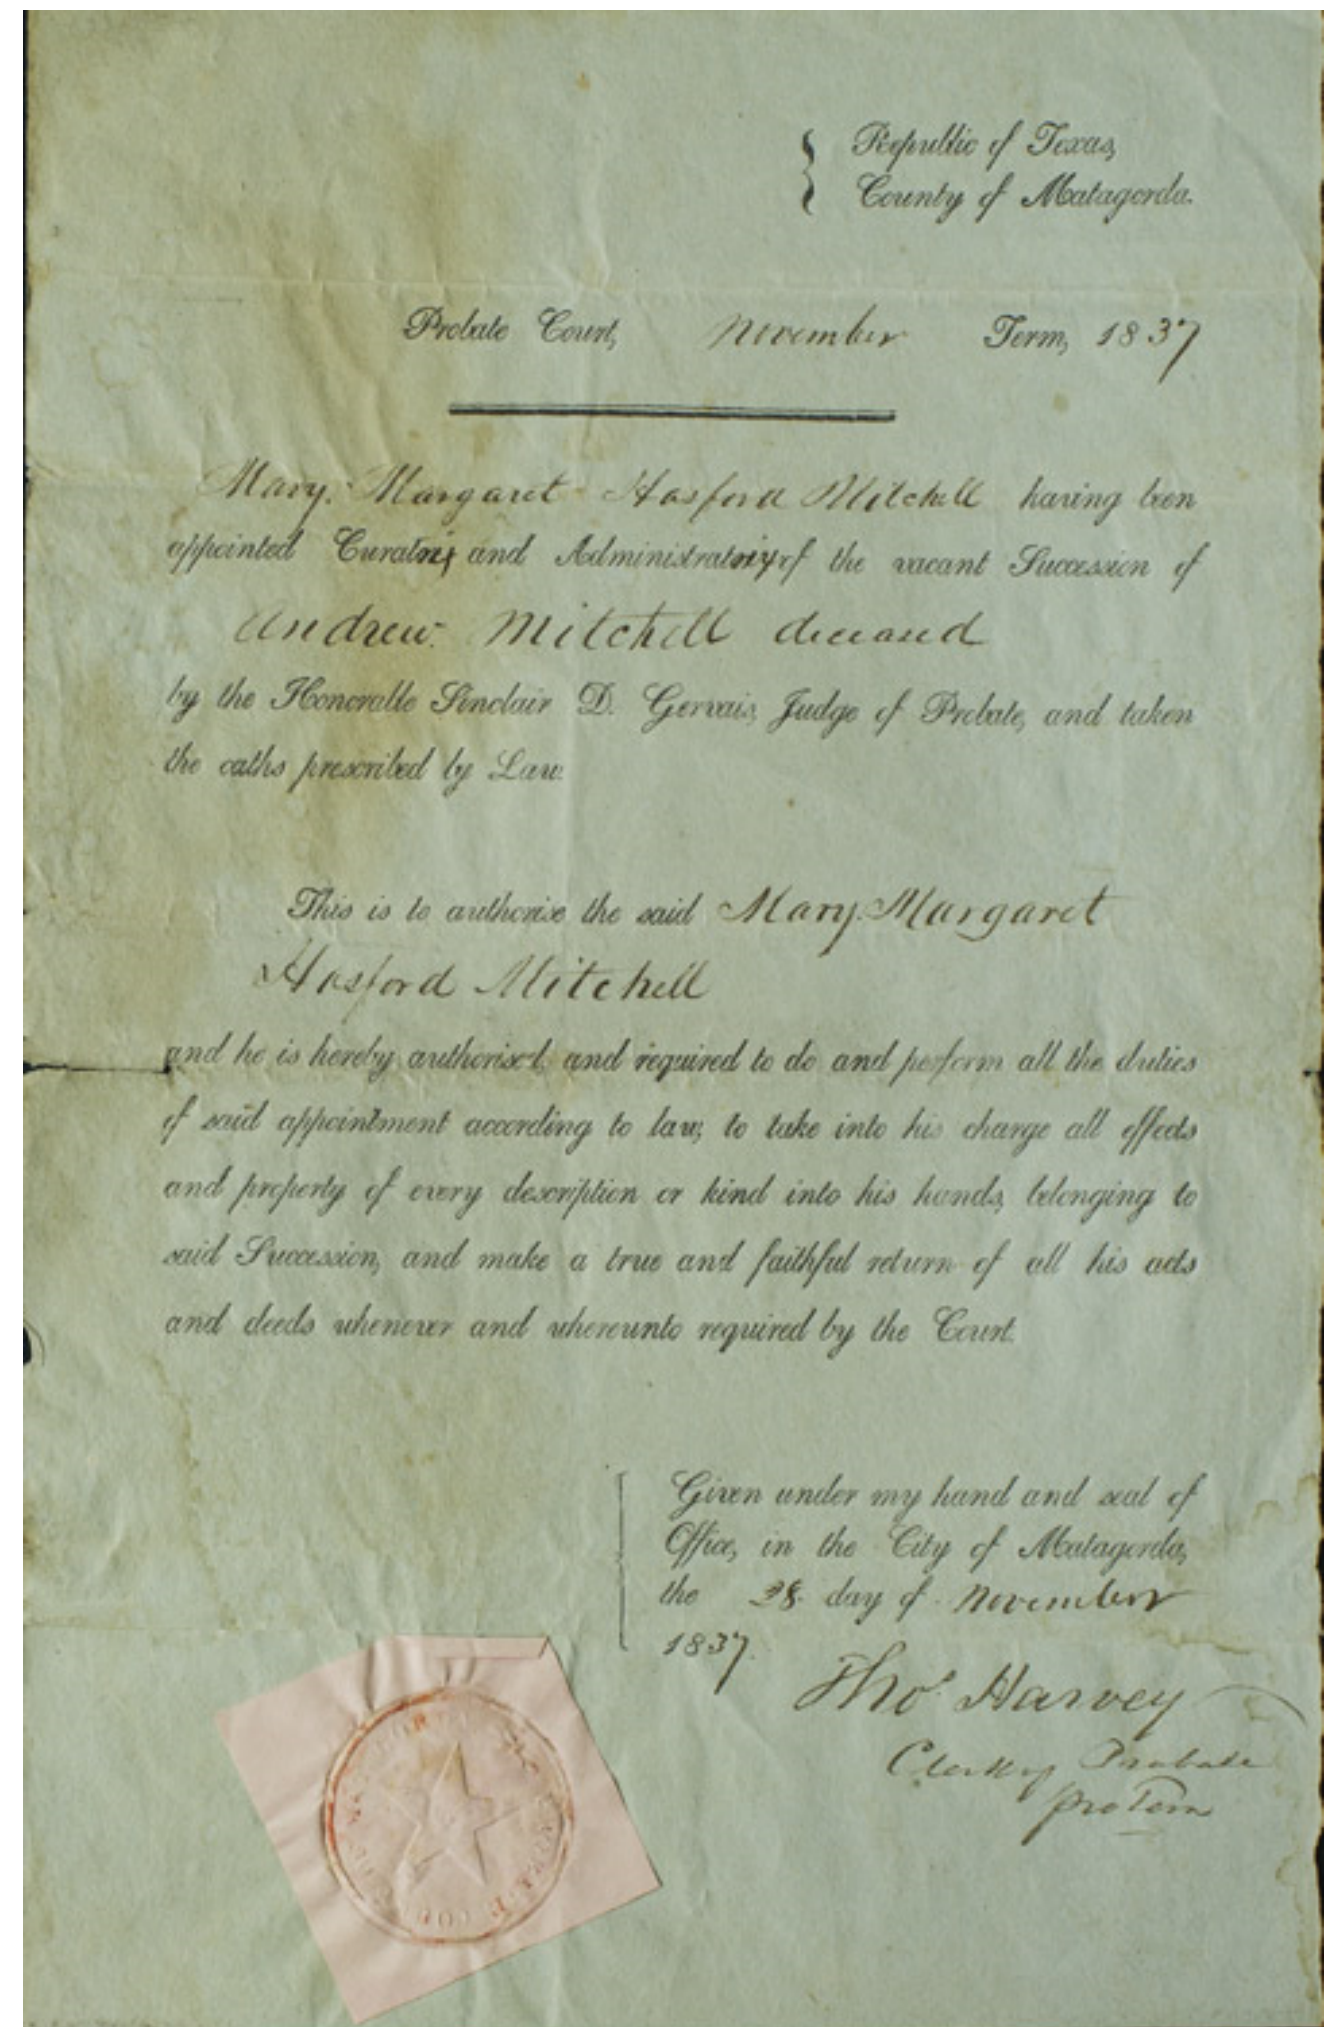 Republic of Texas,
County of Matagorda.
Probate Court, November Term, 1837
Mary. Margaret Hosford Mitchell having been
appointed Curatrix and Administratrix of the vacant Succession of
Andrew. Mitchell deceased
by the Honorable Sinclair D. Gervais, Judge of Probate, and taken
the oaths prescribed by Law.
This is to authorise the said Mary. Margaret
Hosford Mitchell
and he is hereby authorised and required to do and perform all the duties
of said appointment according to law, to take into his charge all effects
and property of every description or kind into his hands, belonging to
said Succession, and make a true and faithful return of all his acts
and deeds whenever and whereunto required by the Court.
Given under my hand and seal of
Office, in the City of Matagorda,
the 28 day of November
1837.
Thos Harvey
Clerk of Probate
pro Tem